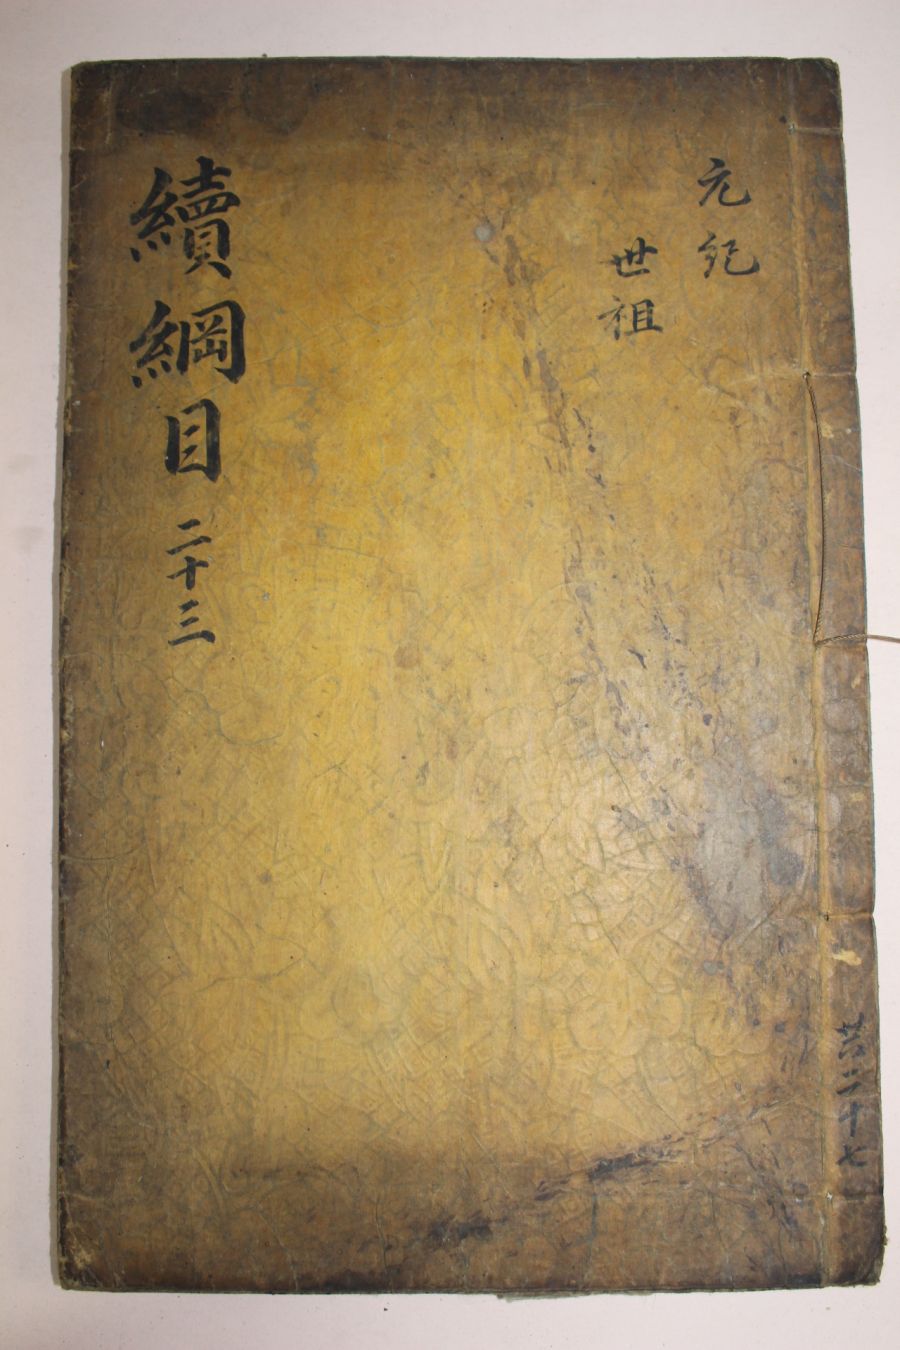 元紀
世祖
續綱目 二十三
共二十七